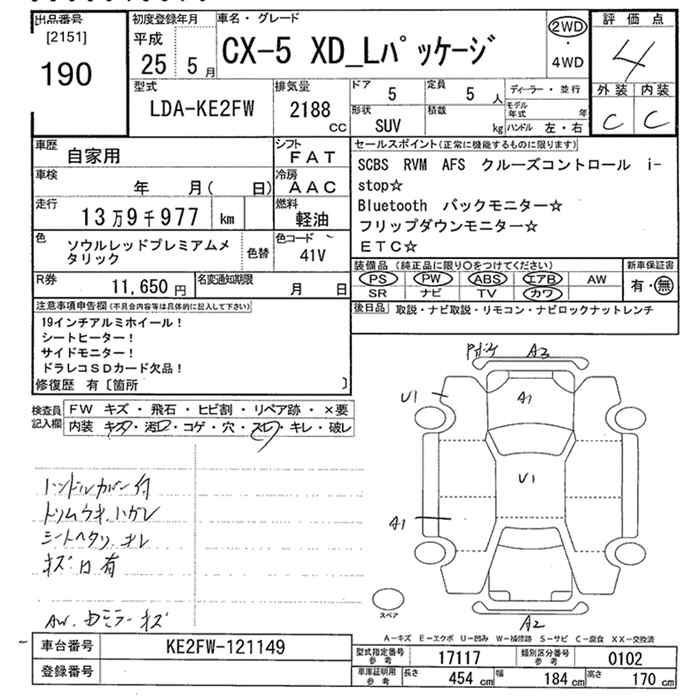 出品番号
[2151]
190
初度登録年月
平成
25 5月
車名・グレード
CX-5 XD_Lパッケージ
2WD
・
4WD
評価点
4
外装 内装
C C
型式
LDA-KE2FW
排気量
2188
CC
ドア 5
定員 5 人
ディーラー・並行
形状 SUV
積載 kg
モデル年式 年
ハンドル 左・右
車歴 自家用
シフト FAT
車検 年 月( 日)
冷房 AAC
走行 13万9千977 km
燃料 軽油
色 ソウルレッドプレミアムメタリック
色替
色コード 41V
R券 11,650円
名変通知期限 月 日
セールスポイント(正常に機能するものに限ります)
SCBS RVM AFS クルーズコントロール i-
stop☆
Bluetooth バックモニター☆
フリップダウンモニター☆
ETC☆
装備品(純正品に限り○をつけてください)
PS PW ABS エアB AW
SR ナビ TV カワ
新車保証書
有・無
後日品 取説・ナビ取説・リモコン・ナビロックナットレンチ
注意事項申告欄(不具合内容等は具体的に記入して下さい)
19インチアルミホイール!
シートヒーター!
サイドモニター!
ドラレコSDカード欠品!
修復歴 有〔箇所 〕
検査員記入欄
FW キズ・飛石・ヒビ割・リペア跡・×要
内装 キズ・汚レ・コゲ・穴・スレ・キレ・破レ
ハンドルカバー付
トリムウキ、ハガレ
シートヘタリ、キレ
キズ凹有
A3
U1
A1
U1
A1
A2
スペア
A-キズ E-エクボ U-凹み W-補修跡 S-サビ C-腐食 XX-交換済
車台番号 KE2FW-121149
登録番号
型式指定番号 参考 17117
類別区分番号 参考 0102
車庫証明用 参考
長さ 454 cm
幅 184 cm
高さ 170 cm